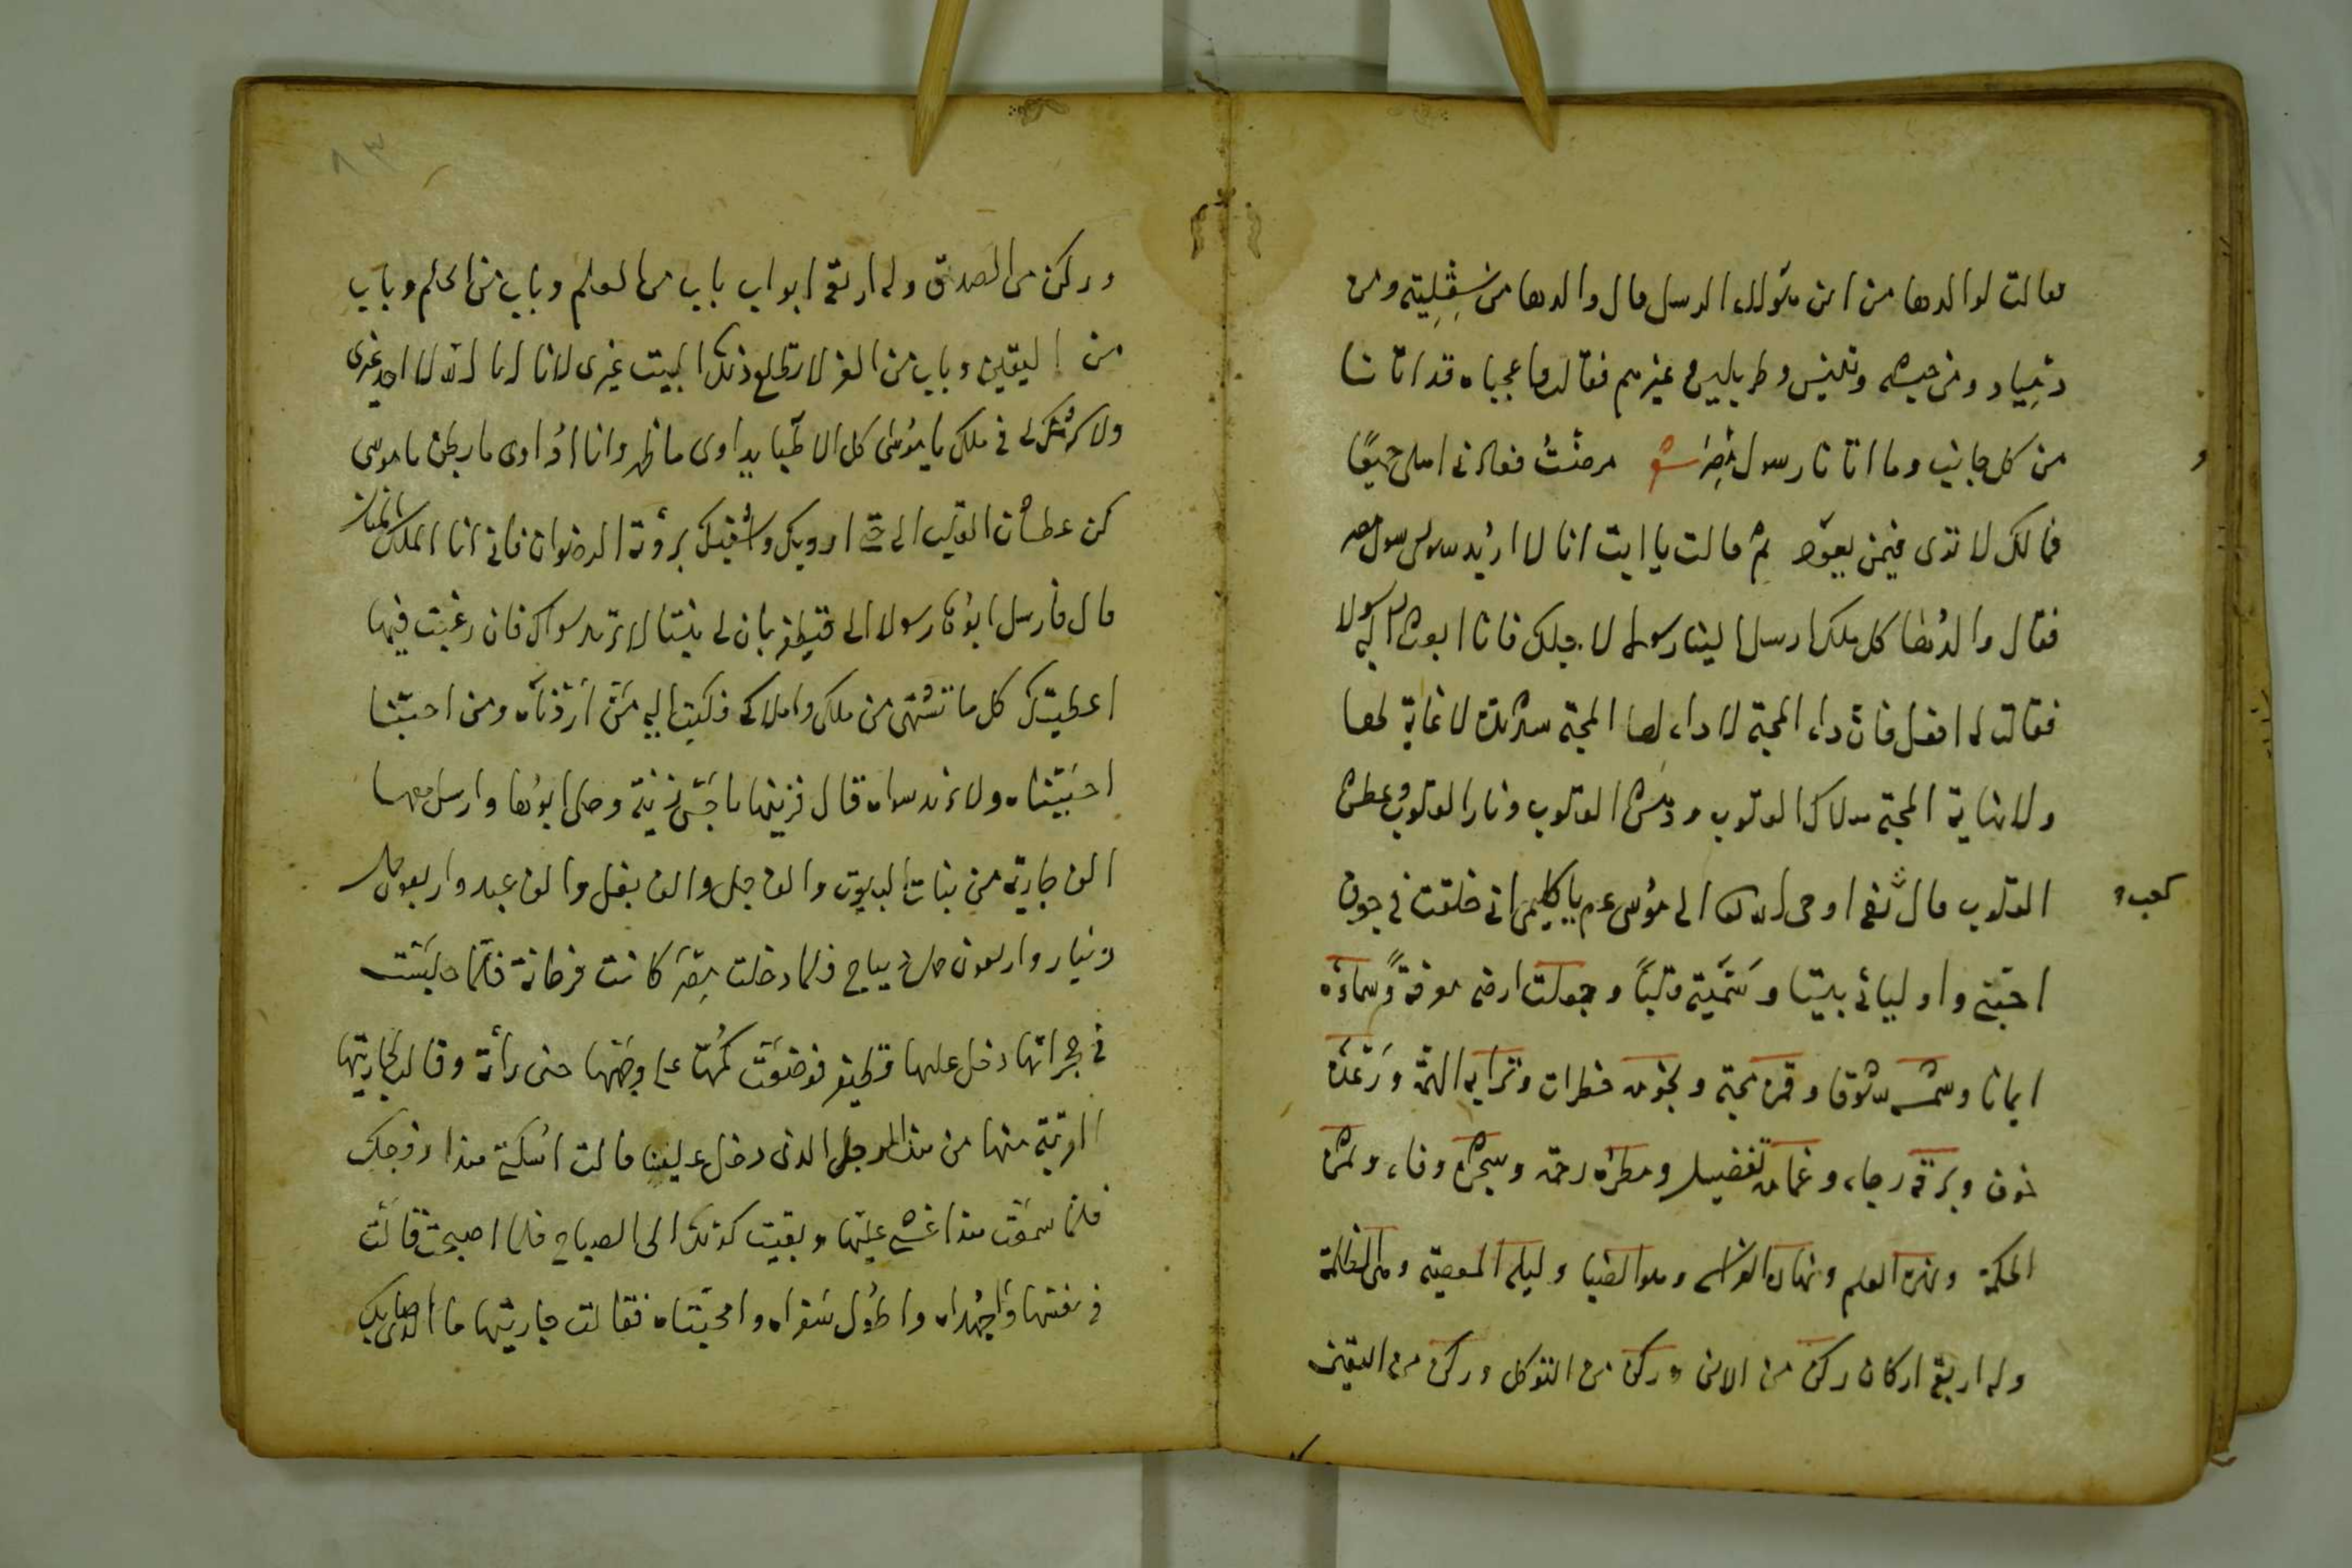 فقالت لوالدها من اين هؤلاء الرسل قال والدها من سقلية ومن
دمياد ومن حبشه وتنيس وطرابلس وغيرهم فقالت واعجباه قد اتانا
من كل جانب وما اتانا رسول مصر شعر مرضت فعادنى اهلى جميعًا
فمالك لا ترى فيمن يعود ثم قالت يا ابت انا لا اريد سوى رسول مصر
فقال والدها كل ملك ارسل الينا رسولا لاجلك فانا ابعث اليه رسولا
فقالت له افعل فان داء المحبة لا داء لها المحبة سر لا غاية لها
ولا نهاية المحبة هلاك القلوب ودهش القلوب ونار القلوب وعطش
القلوب قال ثم اوحى الله تعا الى موسى عم يا كليمى انى خلقت فى جوف
كعب و
احبتى واوليائى بيتا وسميته قلبًا وجعلت ارضه معرفةً وسماءه
ايمانا وشمسه شوقا وقمره محبة ونجومه خطرات وترابه الهمة ورعده
خوف وبرقه رجاء وغمامه تفضيل ومطره رحمة وشجره وفاء وثمره
الحكمة ونهره العلم ونهاره الفراسة وهو الضياء وليله المعصية وهى الظلمة
وله اربع اركان ركن من الانس وركن من التوكل وركن من اليقين
٨٣
وركن من الصدق وله اربعة ابواب باب من العلم وباب من الحلم وباب
من اليقين وباب من العز لا يطلع ذلك البيت غيرى لانا انا الله لا احد غيرى
ولا شريك لى فى ملكى يا موسى كل الاطبا يداوى ما ظهر وانا اداوى ما بطن يا موسى
كن عطشان القلب الى حتى ارويك واسقيك برؤية الرضوان فانى انا الملك المنان
قال فأرسل ابوها رسولا الى قطيفر بان لى بنتا لا تريد سواك فان رغبت فيها
اعطيتك كل ما تشتهى من ملك واملاك فكتب اليه من ارادنا اردناه ومن احبنا
احببناه ولا نريد سواه قال فزينها باحسن زينة وحلى ابوها وارسل معها
الف جارية من بنات الملوك والف جمل والف بغل والف عبد واربعون حمل
دينار واربعون حمل ديباج فلما دخلت مصر كانت فرحانة فلما جلست
فى حجراتها دخل عليها قطيفر فوضعت كمها على وجهها حين رأته وقالت لجاريتها
القريبة منها من هذا الرجل الذى دخل علينا قالت اسكتى هذا زوجك
فلما سمعت هذا غشى عليها وبقيت كذلك الى الصباح فلما اصبحت قالت
فى نفسها واجهداه واطول سفراه وامحبتاه فقالت جاريتها ما الذى اصابك